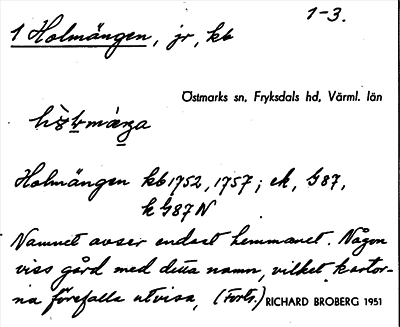 1-3.
1 Holmängen, jr, kb
Östmarks sn, Fryksdals hd, Värml. län
Holmängen kb 1752, 1757; ek, G87,
k G87 N
Namnet avser endast hemmanet. Någon
viss gård med detta namn, vilket kartor-
na förefalla utvisa, (Forts.) RICHARD BROBERG 1951